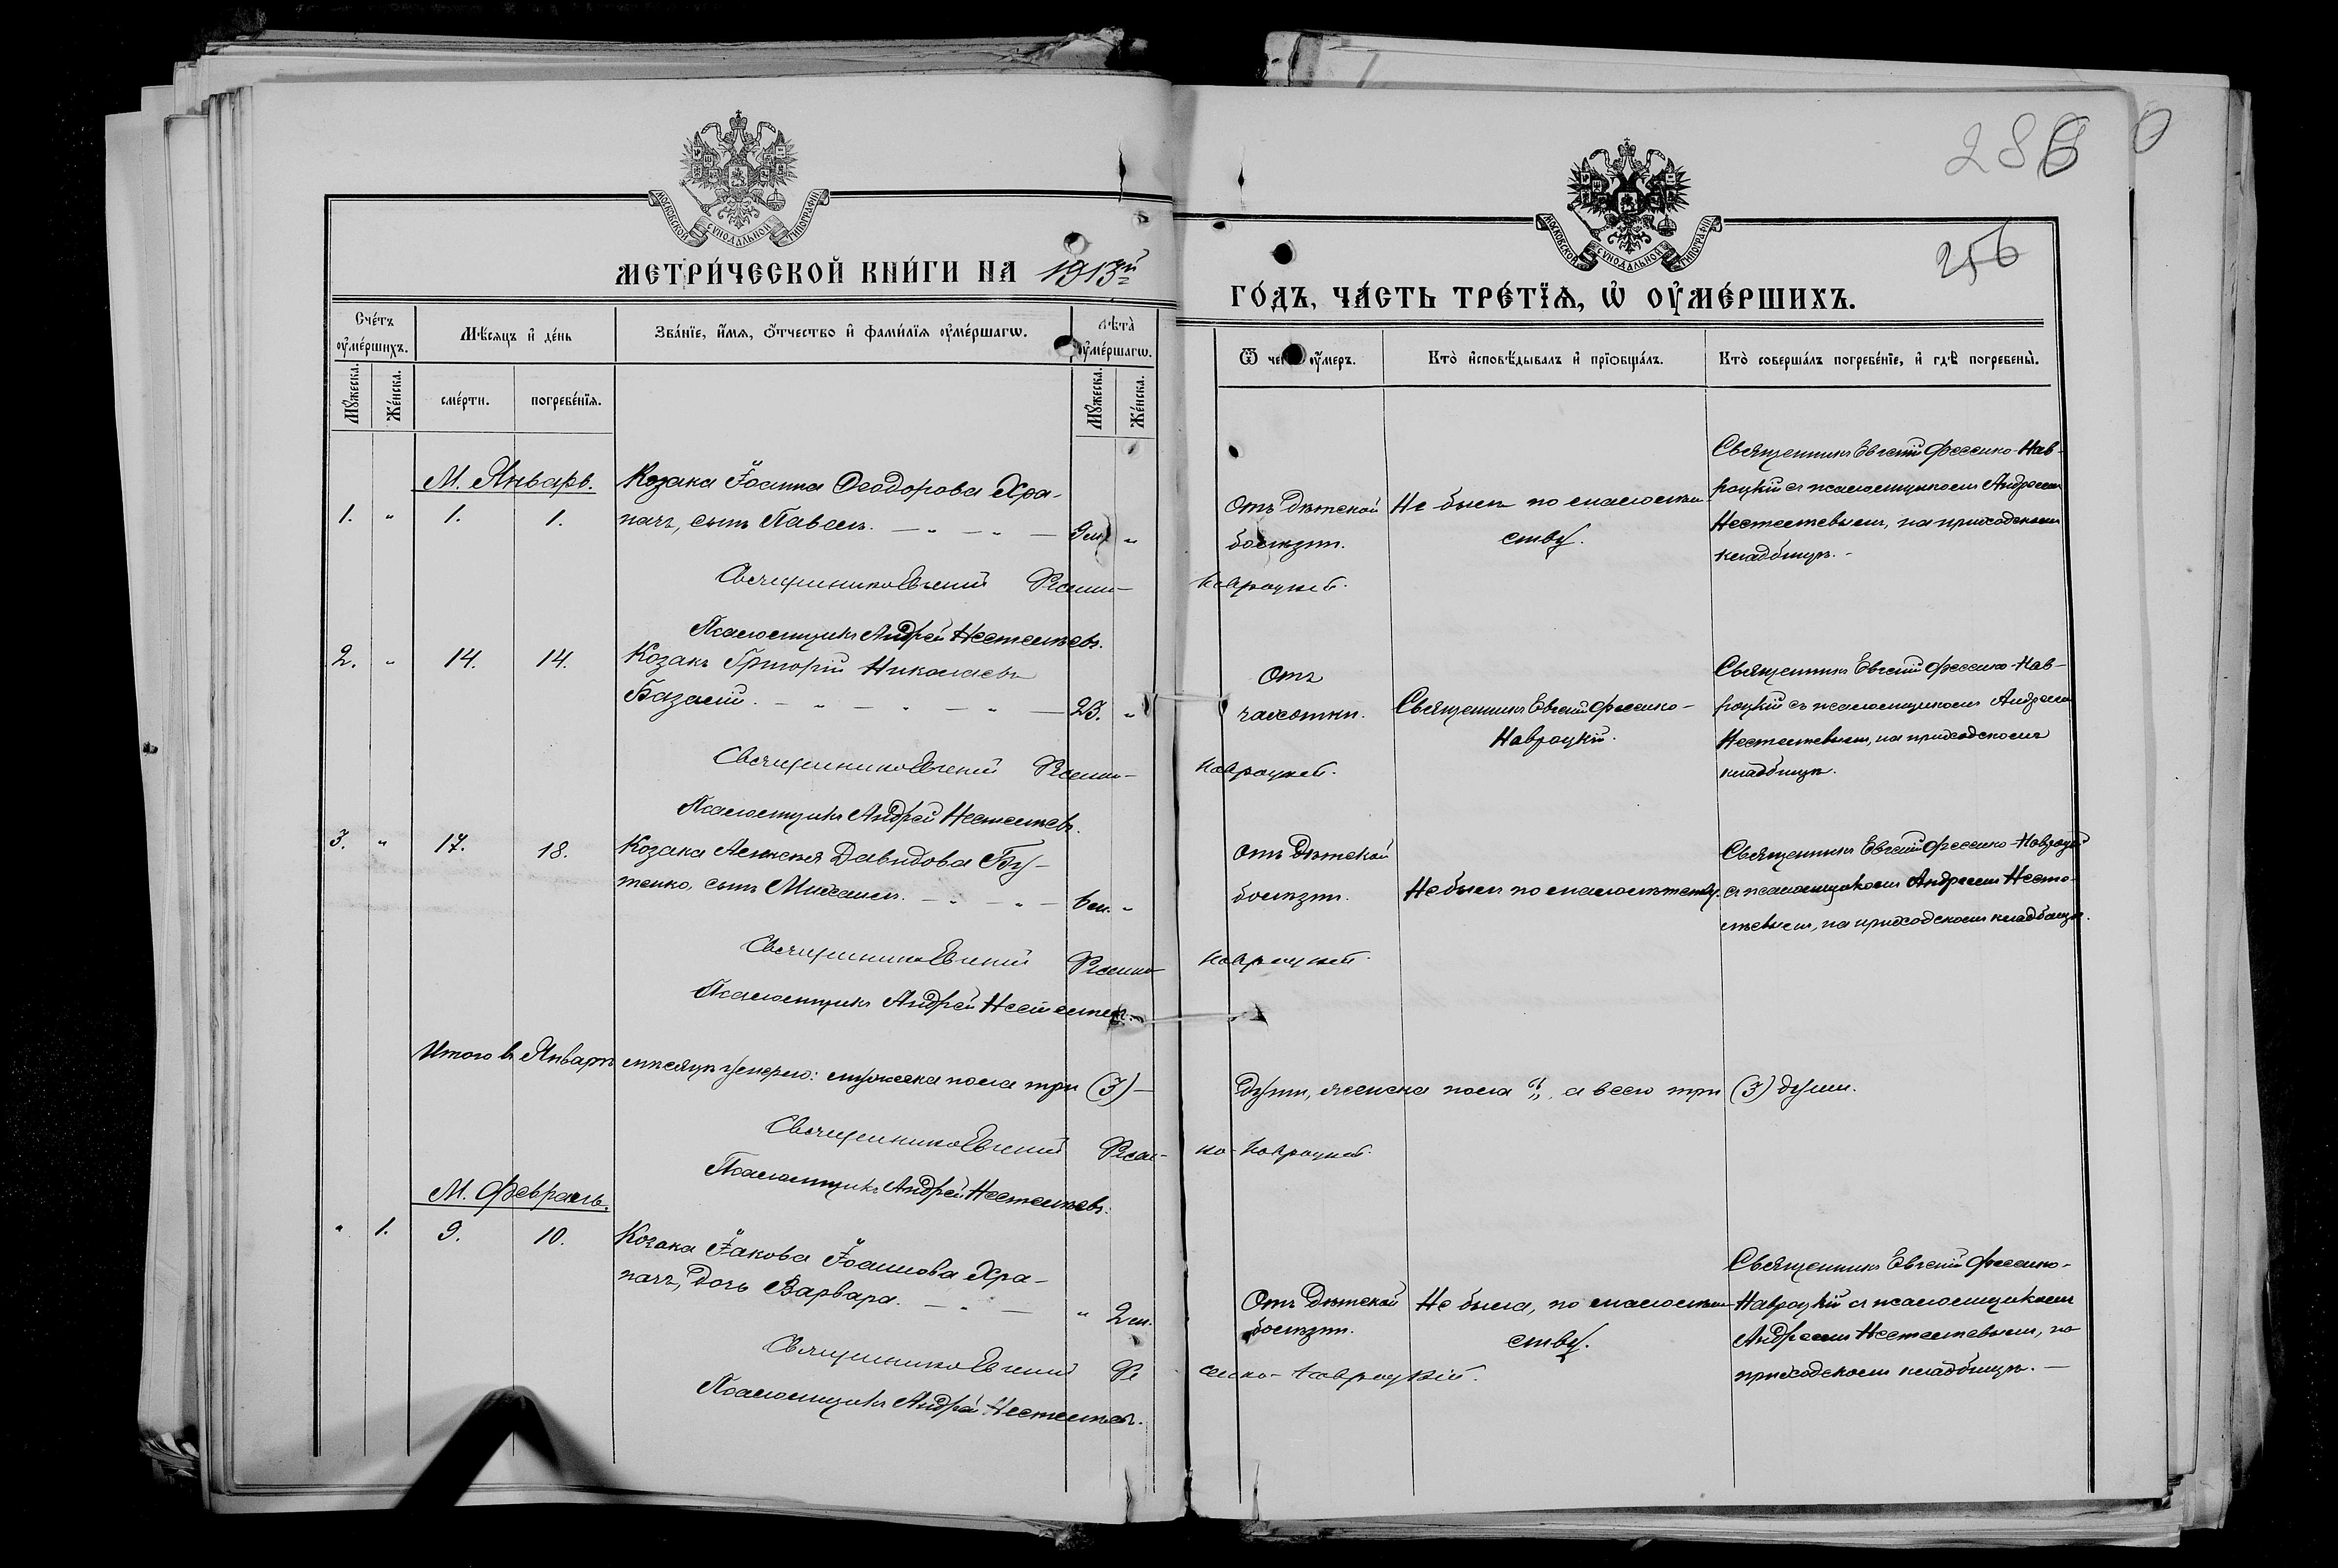 286
256
МОСКОВСКОЙ СУНОДАЛЬНОЙ ТИПОГРАФІИ
МЕТРИ́ЧЕСКОЙ КНИ́ГИ НА 1913й
МОСКОВСКОЙ СУНОДАЛЬНОЙ ТИПОГРАФІИ
ГО́ДЪ, ЧА́СТЬ ТРЕ́ТЇѦ, Ѡ҆ ОУ҆МЕ́РШИХЪ.
Сче́тъ оу҆ме́ршихъ.
Мѣ́сяцъ и҆ де́нь
Зва́нїе, и҆́мѧ, ѻ҆́тчество и҆ фами́лїѧ оу҆ме́ршагѡ.
Лѣта̀ оу҆ме́ршагѡ.
Ѿ чегѡ̀ оу҆́меръ.
Кто̀ и҆сповѣ́дывалъ и҆ прїѡбща́лъ.
Кто̀ соверша́лъ погребе́нїе, и҆ гдѣ̀ погребены̀.
Мꙋ́жеска.
Же́нска.
сме́рти.
погребе́нїѧ.
Мꙋ́жеска.
Же́нска.
М. Январь.
1. " 1. 1.
Козака Іоанна Ѳеодорова Хра-
пачъ, сынъ Павелъ. 9 м. "
Отъ дѣтской
болѣзни.
Не былъ по малолѣт-
ству.
Священникъ Евгеній Фесенко-Нав-
роцкій съ псаломщикомъ Андреемъ
Нестелѣевымъ, на приходскомъ
кладбищѣ.-
Священникъ Евгеній Фесенко-
Навроцкій.
Псаломщикъ Андрей Нестелѣевъ.
2. " 14. 14.
Козакъ Григорій Николаевъ
Базалій. 23. "
Отъ
чахотки.
Священникъ Евгеній Фесенко-
Навроцкій.
Священникъ Евгеній Фесенко-Нав-
роцкій съ псаломщикомъ Андреемъ
Нестелѣевымъ, на приходскомъ
кладбищѣ.
Священникъ Евгеній Фесенко-
Навроцкій.
Псаломщикъ Андрей Нестелѣевъ.
3. " 17. 18.
Козака Алексѣя Давидова Бу-
тенко, сынъ Михаилъ. 6 м. "
Отъ дѣтской
болѣзни.
Не былъ по малолѣтству.
Священникъ Евгеній Фесенко-Навроцкій
съ псаломщикомъ Андреемъ Несте-
лѣевымъ, на приходскомъ кладбищѣ.
Священникъ Евгеній Фесенко-
Навроцкій.
Псаломщикъ Андрей Нестелѣевъ.
Итого въ Январѣ мѣсяцѣ умерло: мужеска пола три (3)-
души, женска пола ", а всего три (3) души.
Священникъ Евгеній Фесен-
ко-Навроцкій.
Псаломщикъ Андрей Нестелѣевъ.
М. Февраль.
" 1. 9. 10.
Козака Іакова Іоаннова Хра-
пачъ, дочь Варвара. " 2 м.
Отъ дѣтской
болѣзни.
Не была, по малолѣт-
ству.
Священникъ Евгеній Фесенко-
Навроцкій съ псаломщикомъ
Андреемъ Нестелѣевымъ, на
приходскомъ кладбищѣ.-
Священникъ Евгеній Фе
сенко-Навроцкій.
Псаломщикъ Андрей Нестелѣевъ.